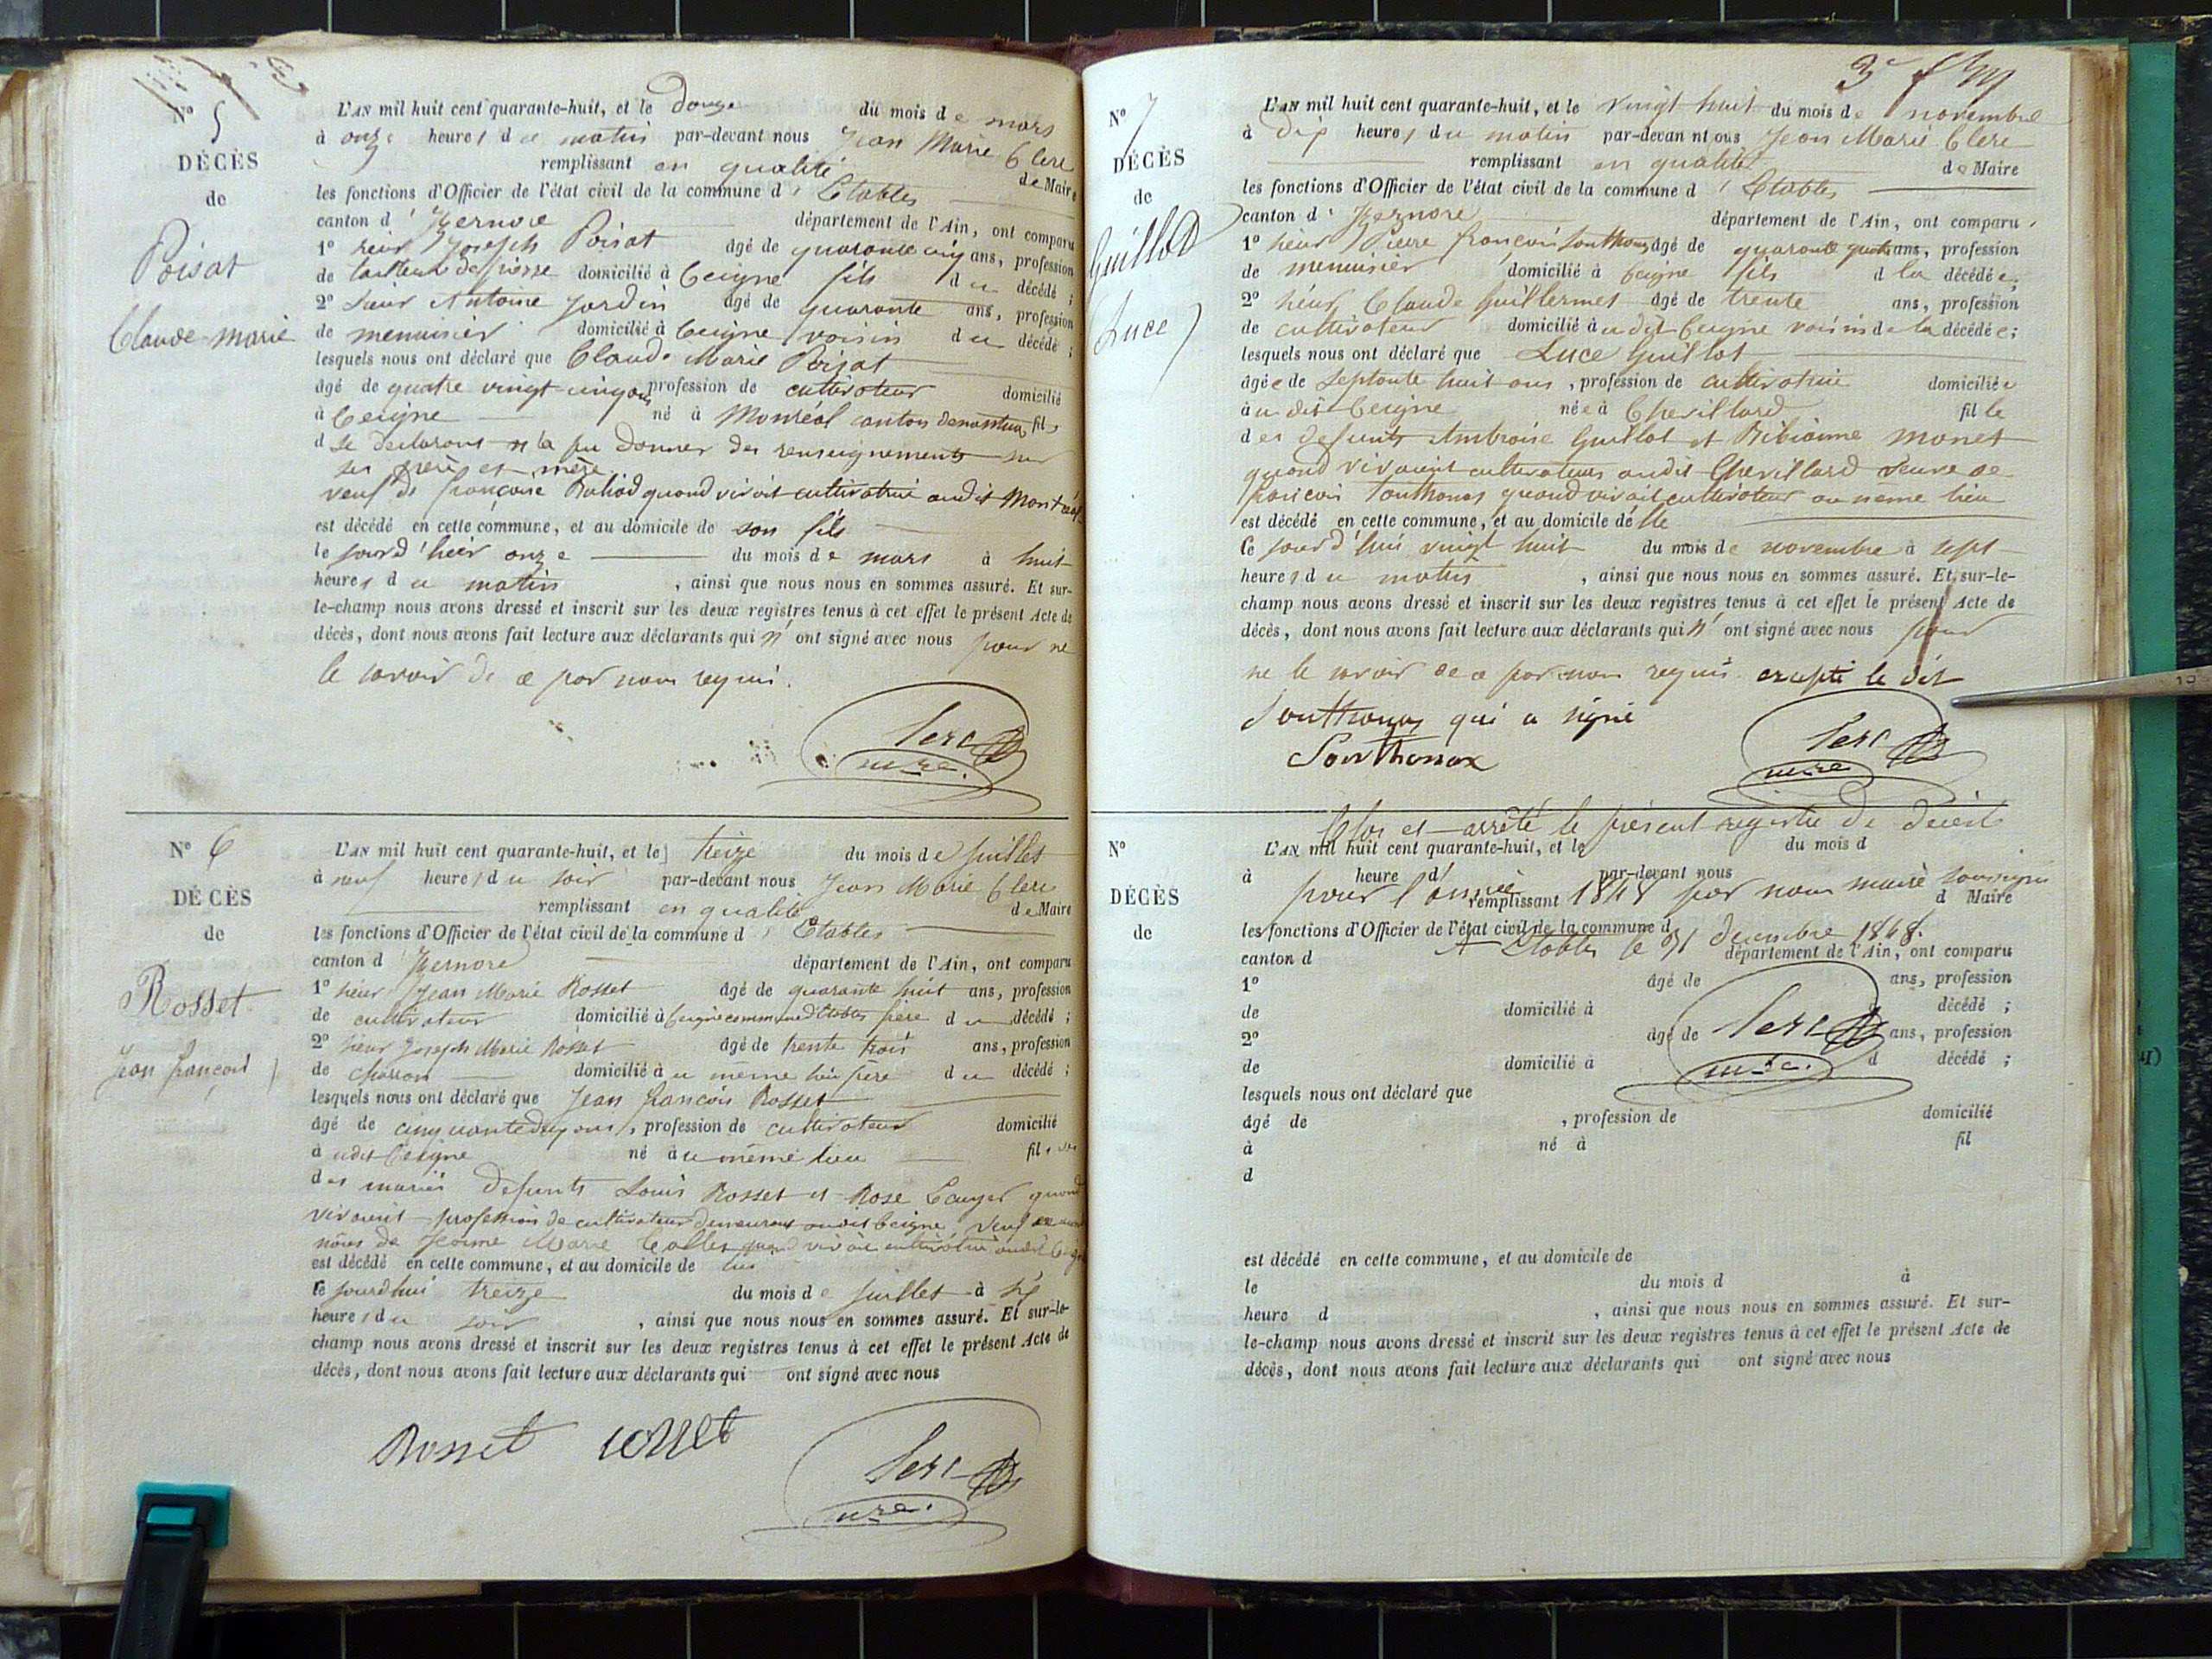 N° 5
DÉCÈS
de
Poisat
Claude-marie
L'AN mil huit cent quarante-huit, et le Douze du mois de mars
à onze heures du matin par-devant nous Jean Marie Clerc
remplissant en qualité de Maire
les fonctions d'Officier de l'état civil de la commune d'Etables
canton d'Izernore département de l'Ain, ont comparu
1° sieur Joseph Poisat âgé de quarante cinq ans, profession
de tailleur de pierre domicilié à Ceigne fils du décédé ;
2° sieur Antoine Jardin âgé de quarante ans, profession
de menuisier domicilié à Ceigne voisin du décédé ;
lesquels nous ont déclaré que Claude Marie Poisat
âgé de quatre vingt-cinq ans profession de cultivateur domicilié
à Ceigne né à Montréal canton de nantua fils
d Le declarant n'a pu donner des renseignements sur
ses père et mère
veuf de françoise quand vivait cultivatrice audit Montréal
est décédé en cette commune, et au domicile de son fils
le jour d'hier onze du mois de mars à huit
heures du matin , ainsi que nous nous en sommes assuré. Et sur-
le-champ nous avons dressé et inscrit sur les deux registres tenus à cet effet le présent Acte de
décès, dont nous avons fait lecture aux déclarants qui n'ont signé avec nous pour ne
le savoir de ce par nous requis.
Clerc
mre.
N° 6
DÉCÈS
de
Rosset
Jean françois
L'AN mil huit cent quarante-huit, et le treize du mois de juillet
à neuf heures du soir par-devant nous Jean Marie Clerc
remplissant en qualité de Maire
les fonctions d'Officier de l'état civil de la commune d'Etables
canton d'Izernore département de l'Ain, ont comparu
1° sieur Jean Marie Rosset âgé de quarante huit ans, profession
de cultivateur domicilié à Ceigne commune d'Etables frère du décédé ;
2° sieur Joseph Marie Rosset âgé de trente trois ans, profession
de charron domicilié au meme lieu frere du décédé ;
lesquels nous ont déclaré que Jean françois Rosset
âgé de cinquante deux ans, profession de cultivateur domicilié
à udit Ceigne né au même lieu fils
des mariés defunts Louis Rosset et Rose quand
vivaient profession de cultivateur demeurant audit Ceigne, veuf en
nôces de Jeanne Marie quand vivait cultivatrice audit Ceigne
est décédé en cette commune, et au domicile de lui
le jourdhui treize du mois de juillet à six
heures du soir , ainsi que nous nous en sommes assuré. Et sur-le-
champ nous avons dressé et inscrit sur les deux registres tenus à cet effet le présent Acte de
décès, dont nous avons fait lecture aux déclarants qui ont signé avec nous
Rosset rosset
Clerc
mre.
3e
N° 7
DÉCÈS
de
Guillot
Luce
L'AN mil huit cent quarante-huit, et le vingt huit du mois de novembre
à dix heures du matin par-devant nous Jean Marie Clerc
remplissant en qualité de Maire
les fonctions d'Officier de l'état civil de la commune d'Etables
canton d'Izernore département de l'Ain, ont comparu
1° sieur Pierre françois Sonthonax âgé de quarante quatre ans, profession
de menuisier domicilié à Ceigne fils d la décédée ;
2° sieur Claude Guillermet âgé de trente ans, profession
de cultivateur domicilié à udit Ceigne voisin de la décédée ;
lesquels nous ont déclaré que Luce Guillot
âgée de septante huit ans , profession de cultivatrice domiciliée
à udit Ceigne née à Chevillard fille
des defunts Ambroise Guillot et Bibianne monet
quand vivaient cultivateurs audit Chevillard veuve de
françois Sonthonax quand vivait cultivateur au même lieu
est décédé en cette commune, et au domicile d'elle
le jour d'hui vingt huit du mois de novembre à sept
heures du matin , ainsi que nous nous en sommes assuré. Et sur-le-
champ nous avons dressé et inscrit sur les deux registres tenus à cet effet le présent Acte de
décès, dont nous avons fait lecture aux déclarants qui n'ont signé avec nous pour
ne le savoir de ce par nous requis. excepté le dit
Sonthonax qui a signé
Sonthonax
Clerc
mre.
Clos et arrêté le présent registre de décès
N°
DÉCÈS
de
L'AN mil huit cent quarante-huit, et le du mois d
à heure d par-devant nous
pour l'année 1848 par nous maire soussigné
remplissant d Maire
les fonctions d'Officier de l'état civil de la commune d
A Etables le 31 decembre 1848.
canton d département de l'Ain, ont comparu
1° âgé de ans, profession
de domicilié à décédé ;
2° âgé de ans, profession
Clerc
de domicilié à d décédé ;
mre.
lesquels nous ont déclaré que
âgé de , profession de domicilié
à né à fil
d
est décédé en cette commune, et au domicile de
le du mois d à
heure d , ainsi que nous nous en sommes assuré. Et sur-
le-champ nous avons dressé et inscrit sur les deux registres tenus à cet effet le présent Acte de
décès, dont nous avons fait lecture aux déclarants qui ont signé avec nous